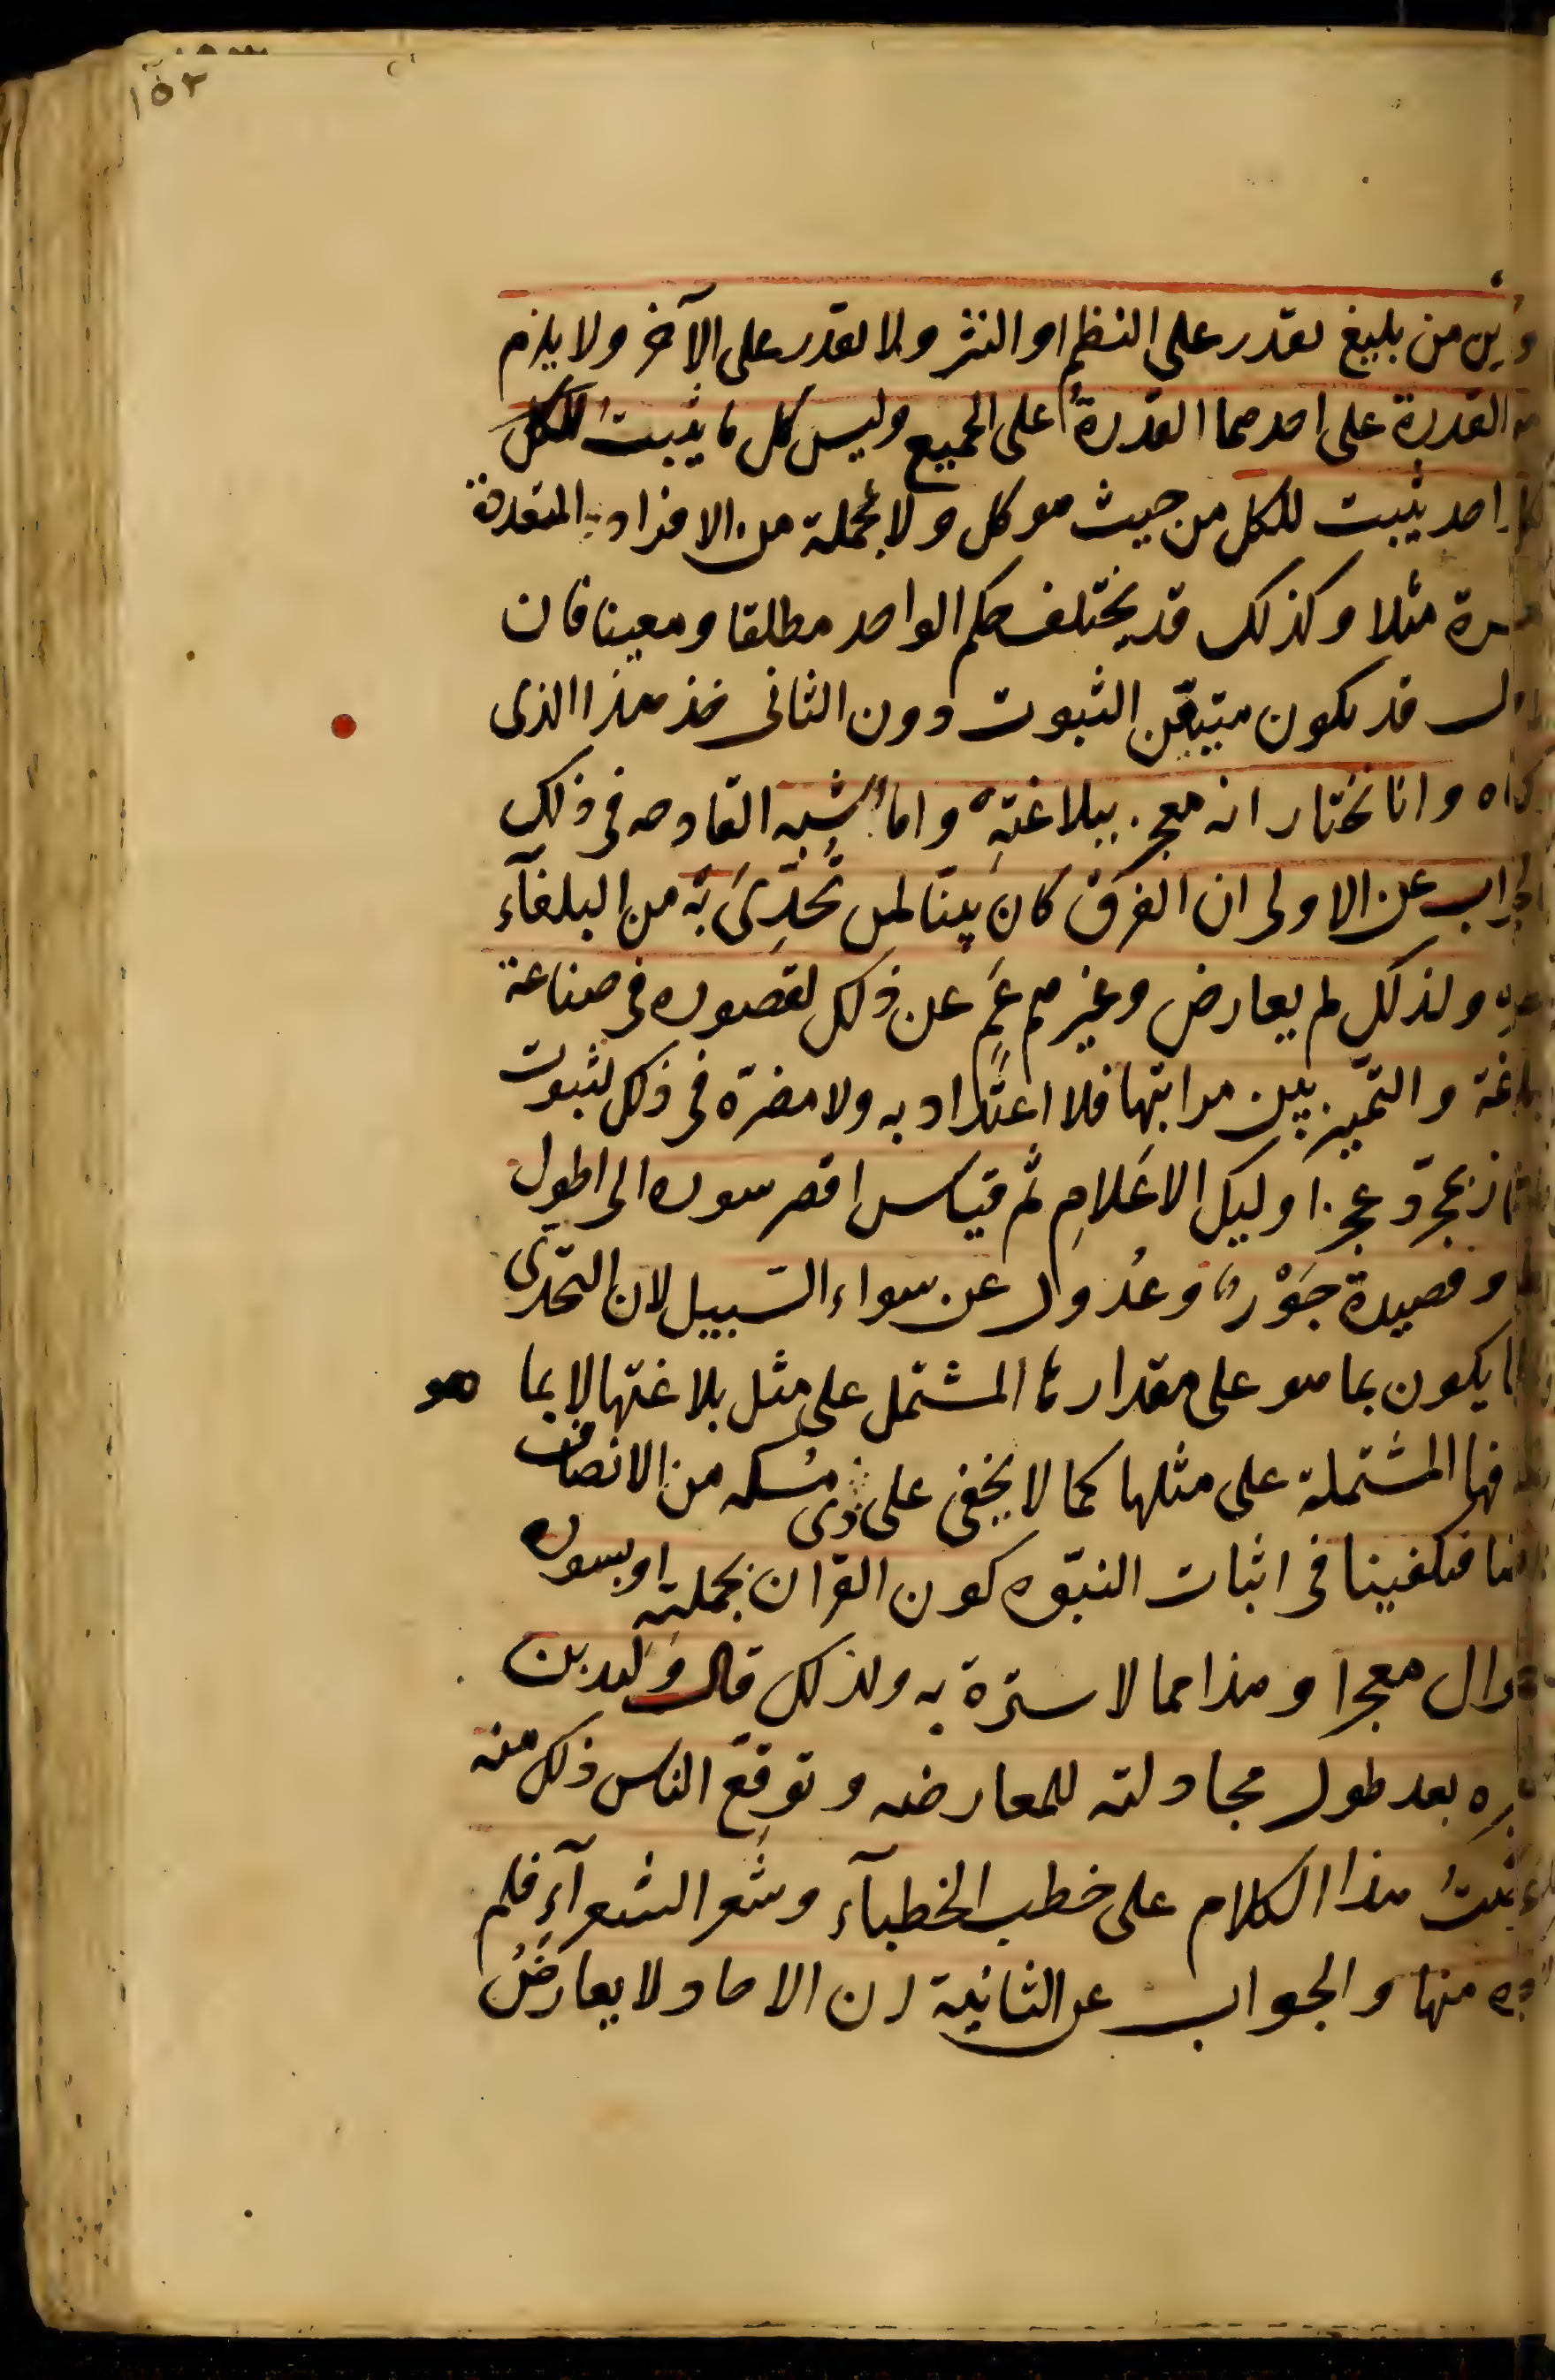 ١٥٢
وأين من بليغ يقدر على النظم او النثر ولا يقدر على الآخر ولا يلزم
القدرة على احدهما القدرة على الجميع وليس كل ما يثبت للكل
لكل احد يثبت للكل من حيث هو كل ولا بجملة من الافراد المتعددة
مثلا وكذلك قد يختلف حكم الواحد مطلقا ومعينا فان
قد يكون متيقن الثبوت دون الثانى فخذ هذا الذى
وانا نختار انه معجز ببلاغتهِ واما الشبه القادحه فى ذلك
الجواب عن الاولى ان الفرق كان بينا لمن تُحُدِّىَ به من البلغآء
ولذلك لم يعارض وغيرهم عَمٍ عن ذلك لقصوره فى صناعة
البلاغة والتميز بين مراتبها فلا اعتداد به ولا مضرة فى ذلك لثبوت
بمجرّد عجز اوليك الاعلامِ ثم قياس اقصر سوره الى اطول
وقصيدة جَوْرٌ وعُدول عن سواء السّبيل لان التحدّى
يكون بما هو على مقدارها المشتمل على مثل بلاغتها لا بما هو
المشتملة على مثلها كما لا يخفى على ذى مُسكه من الانصاف
فيكفينا فى اثبات النبّوه كون القران بجملتِه او بسوره
الطوال معجزا وهذا مما لا سترة به ولذلك قال وليد بن
بعد طول محاولته للمعارضه وتوقع الناس ذلك منه
هذا الكلام على خطب الخطبآء وشعر الشعرآءِ فلم
منها والجواب عن الثانية ان الاحاد لا يعارضُ